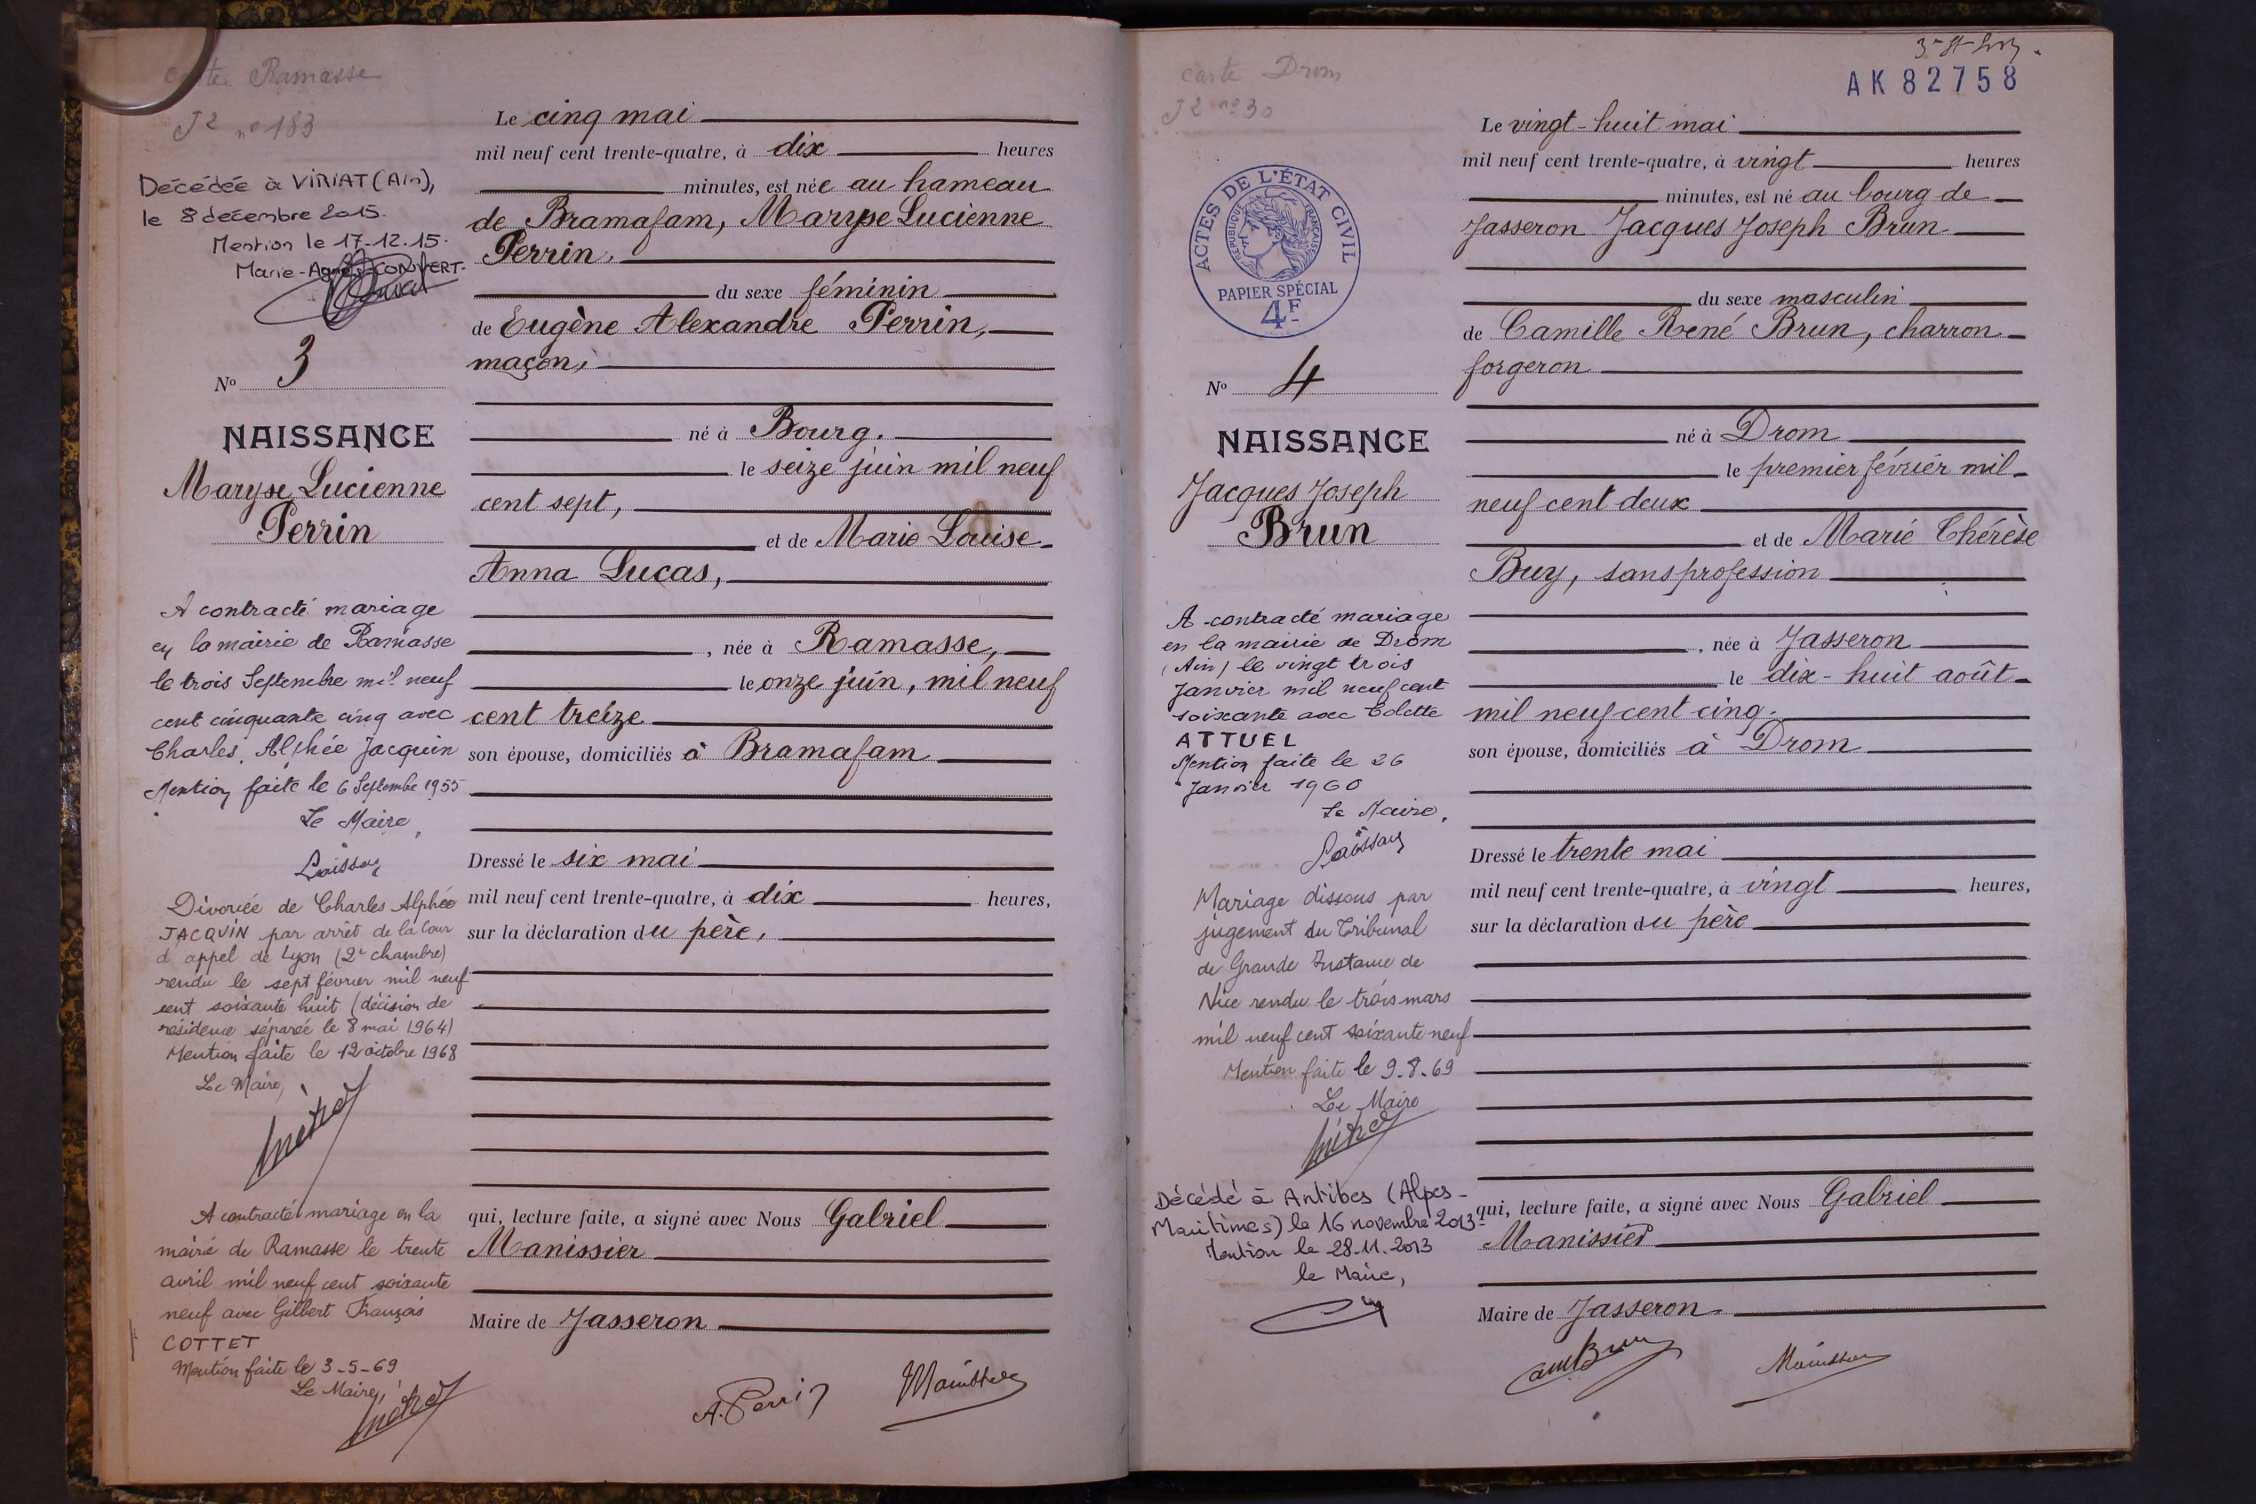 carte Ramasse
J2 nº 183
Décédée à VIRIAT (Ain),
le 8 décembre 2015.
Mention le 17-12.15.
Marie-Agnès CONVERT-
Nº 3
NAISSANCE
Maryse Lucienne
Perrin
A contracté mariage
en la mairie de Ramasse
le trois Septembre mil neuf
cent cinquante cinq avec
Charles, Alphée Jacquin
Mention faite le 6 Septembre 1955
Le Maire,
Divorcée de Charles Alphée
JACQUIN par arrêt de la Cour
d'appel de Lyon (2e chambre)
rendu le sept février mil neuf
cent soixante huit (décision de
résidence séparée le 8 mai 1964)
Mention faite le 12 octobre 1968
Le Maire,
A contracté mariage en la
mairie de Ramasse le trente
avril mil neuf cent soixante
neuf avec Gilbert François
COTTET
Mention faite le 3-5-69
Le Maire,
Le cinq mai
mil neuf cent trente-quatre, à dix heures
minutes, est née au hameau
de Bramafam, Maryse Lucienne
Perrin,
du sexe féminin
de Eugène Alexandre Perrin,
maçon,
né à Bourg.
le seize juin mil neuf
cent sept,
et de Marie Louise
Anna Lucas,
, née à Ramasse,
le onze juin, mil neuf
cent treize
son épouse, domiciliés à Bramafam
Dressé le six mai
mil neuf cent trente-quatre, à dix heures,
sur la déclaration du père,
qui, lecture faite, a signé avec Nous Gabriel
Manissier
Maire de Jasseron
A. Perrin
carte Drom
J2 nº 30
AK 82758
ACTES DE L'ÉTAT CIVIL
RÉPUBLIQUE FRANÇAISE
PAPIER SPÉCIAL
4F
Nº 4
NAISSANCE
Jacques Joseph
Brun
A contracté mariage
en la mairie de Drom
(Ain) le vingt trois
Janvier mil neuf cent
soixante avec Colette
ATTUEL
Mention faite le 26
Janvier 1960
Le Maire,
Mariage dissous par
jugement du Tribunal
de Grande Instance de
Nice rendu le trois mars
mil neuf cent soixante neuf
Mention faite le 9-8-69
Le Maire
Décédé à Antibes (Alpes-
Maritimes) le 16 novembre 2013-
Mention le 28.11.2013
le Maire,
Le vingt-huit mai
mil neuf cent trente-quatre, à vingt heures
minutes, est né au bourg de
Jasseron Jacques Joseph Brun
du sexe masculin
de Camille René Brun, charron
forgeron
né à Drom
le premier février mil
neuf cent deux
et de Marie Thérèse
Buy, sans profession
, née à Jasseron
le dix-huit août
mil neuf cent cinq.
son épouse, domiciliés à Drom
Dressé le trente mai
mil neuf cent trente-quatre, à vingt heures,
sur la déclaration du père
qui, lecture faite, a signé avec Nous Gabriel
Manissier
Maire de Jasseron